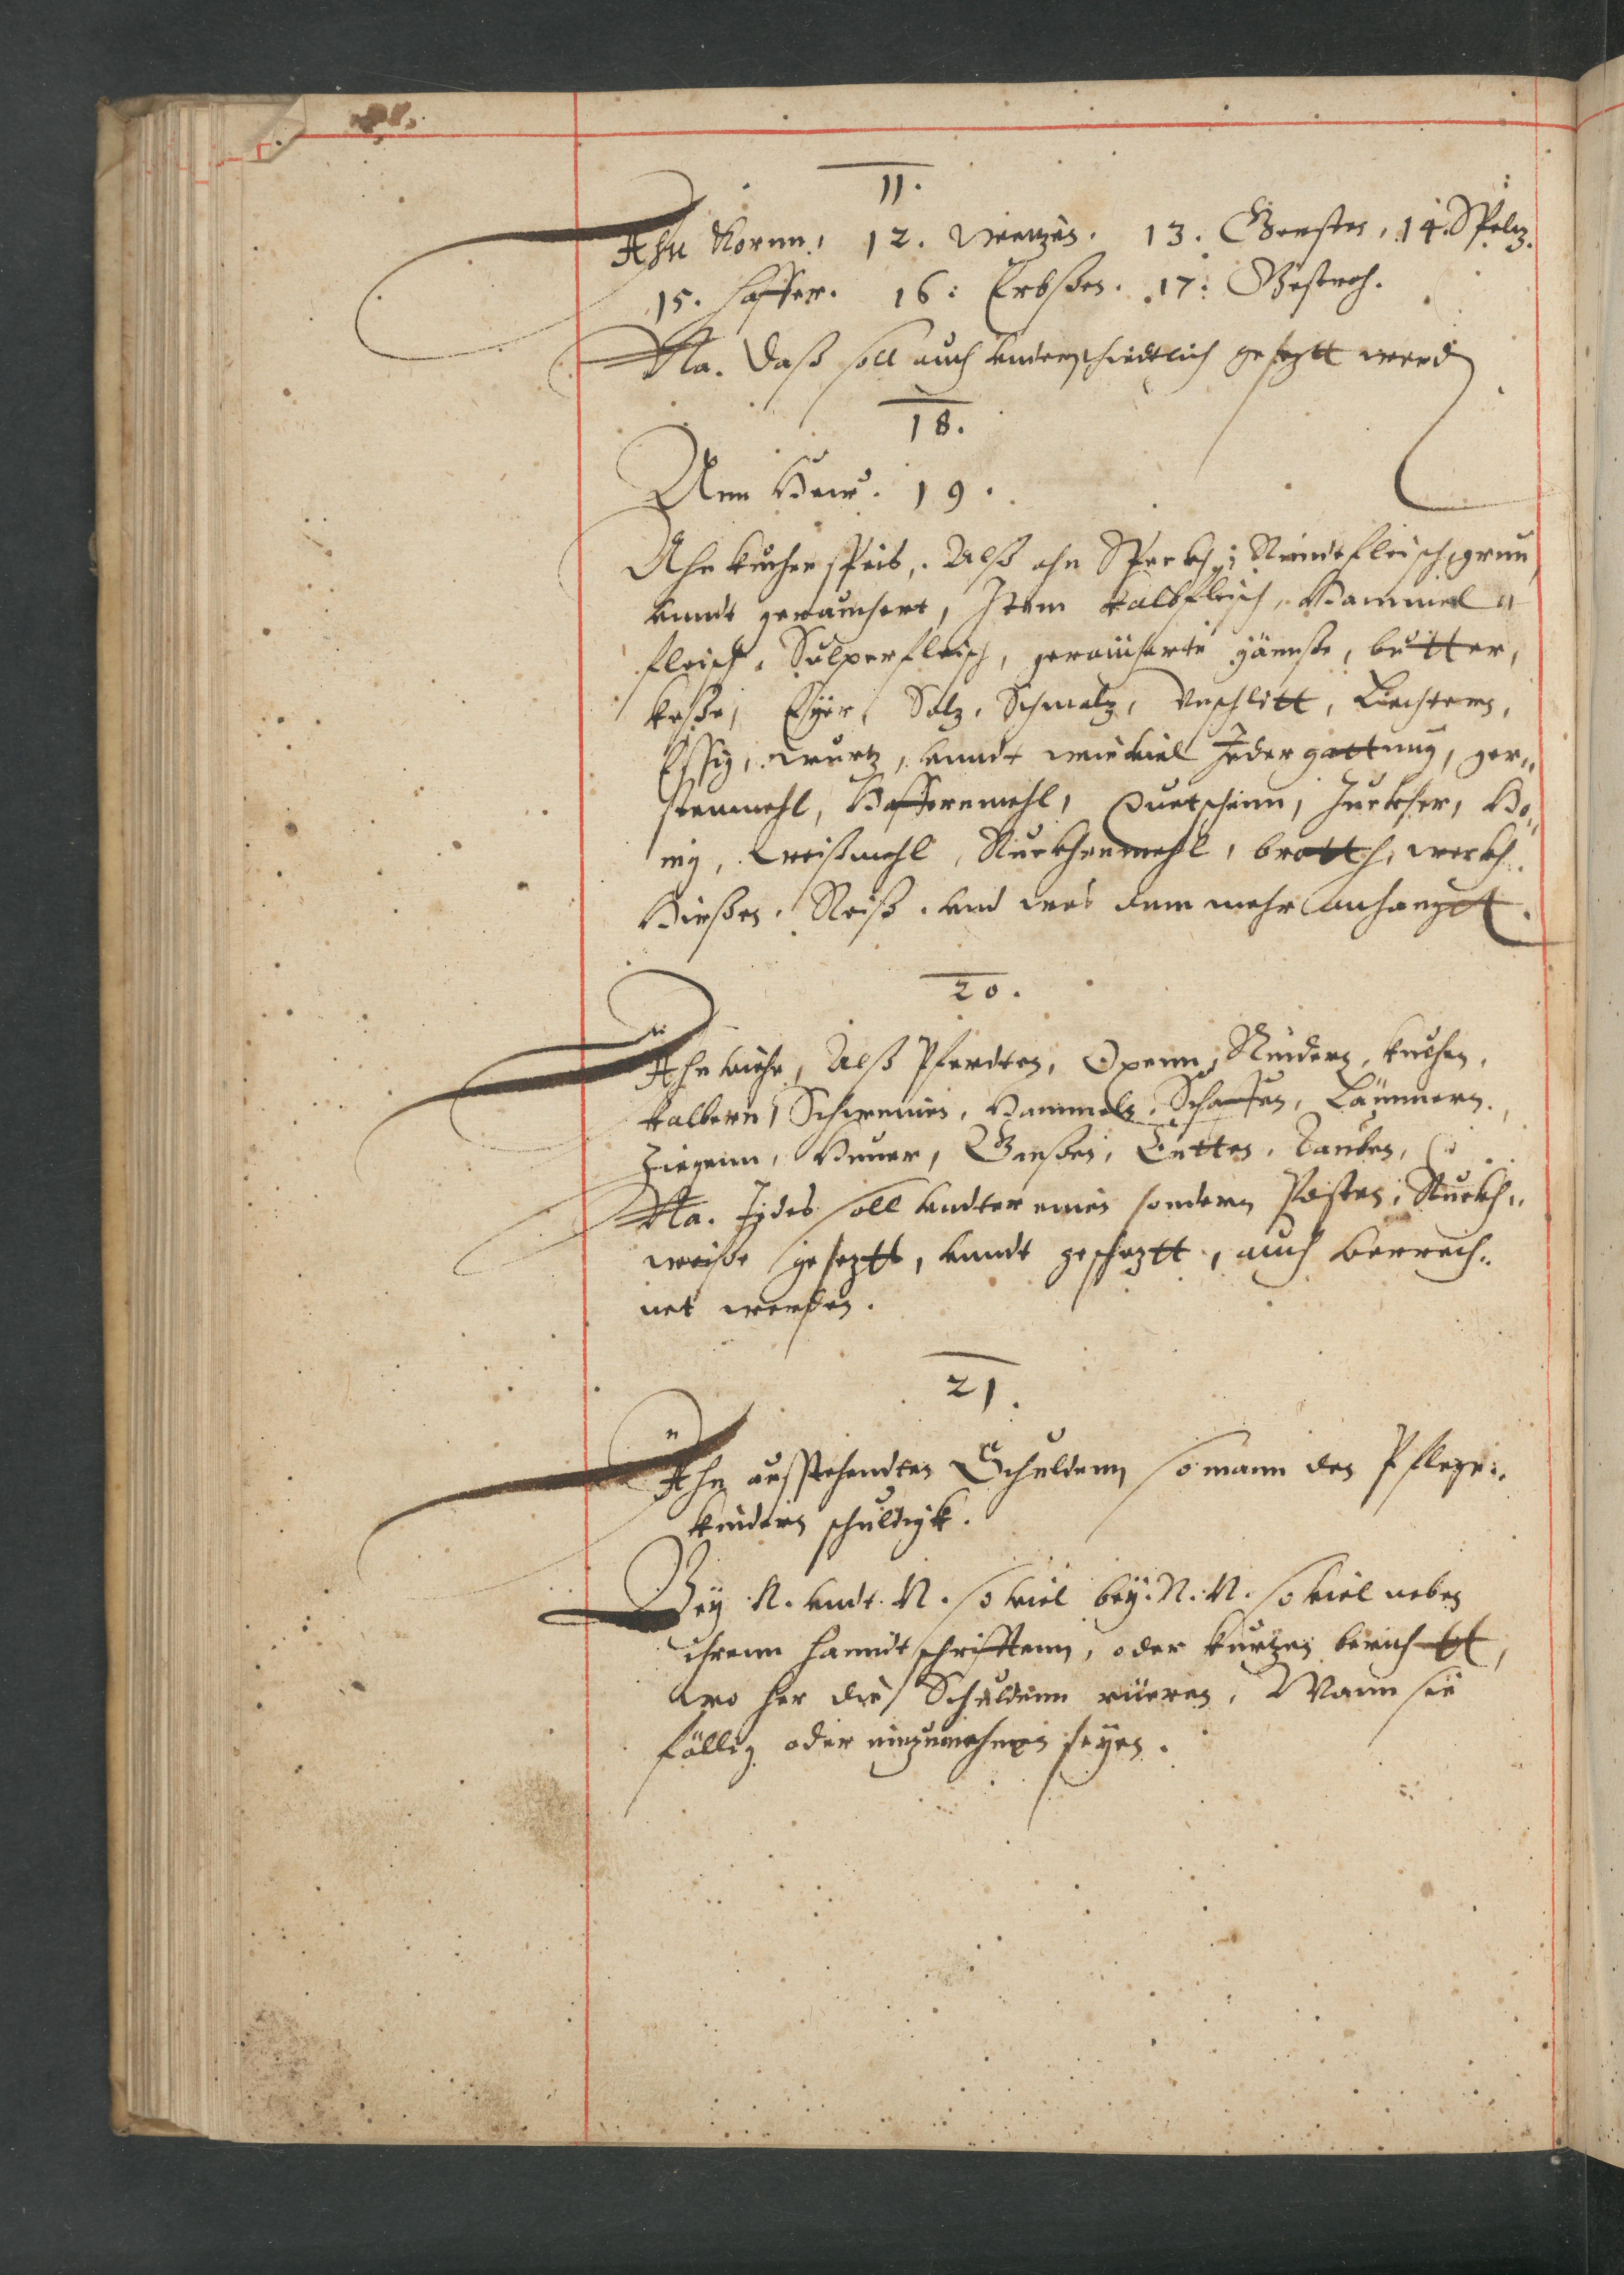 11.
Ahn Kornn, 12. Weitzen. 13. Gersten, 14. Spelz.
15. Haffer. 16: Erbßen. 17: Gestroh.
Na. Daß soll auch underschiedtlich gesetztt werd
18.
Ann Hew. 19.
Ahn kuchenspeis, Alß ahn Speckh, Rindtfleisch, grun
unndt gerauchert, Item kalbfleisch, Hammel
fleisch, Sulperfleisch, geraucherte gännße, butter,
keße, Eyer, Salz, Schmalz, Unschlitt, Liechtern,
Essig, wurtz, unndt wieviel Jeder gattung, ger„
stenmehl, Haffernmehl, Quetschenn, Zuckher, Ho„
nig, Weißmehl, Ruckhenmehl, brott, werkh
Hirßen, Reiß, und was dem mehr anhangtt.
20.
Ahn viehe, Alß Pferdten, Oxenn, Rindern, kuehen,
kalbern, Schweinen, Hammeln, Schaffen, Lämmern,
Ziegenn, Huner, Genßen, Entten, Tauben,
Na. Jedes soll undter einen sondern Posten, Stuckh„
weiße gesetztt, unndt geschetztt, auch berrech„
net werden.
21.
Ahn ausstehendten Schuldenn so mann den Pflege„
kindern schuldigk.
Bey N. undt. N. so viel bey. N. N. so viel neben
ihrenn handtschrifftenn, oder kurtzen berichtt,
wo her die Schuldenn rüeren, Wann sie
fällig oder einzunehmen seyen.